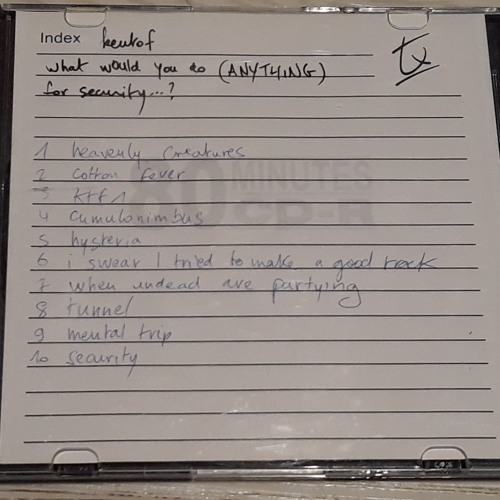 Index kentof
tx
what would you do (ANYTHING)
for security...?
80 MINUTES
CD-R
1 heavenly creatures
2 cotton fever
3 KTF 1
4 cumulonimbus
5 hysteria
6 i swear I tried to make a good track
7 when undead are partying
8 tunnel
9 mental trip
10 security